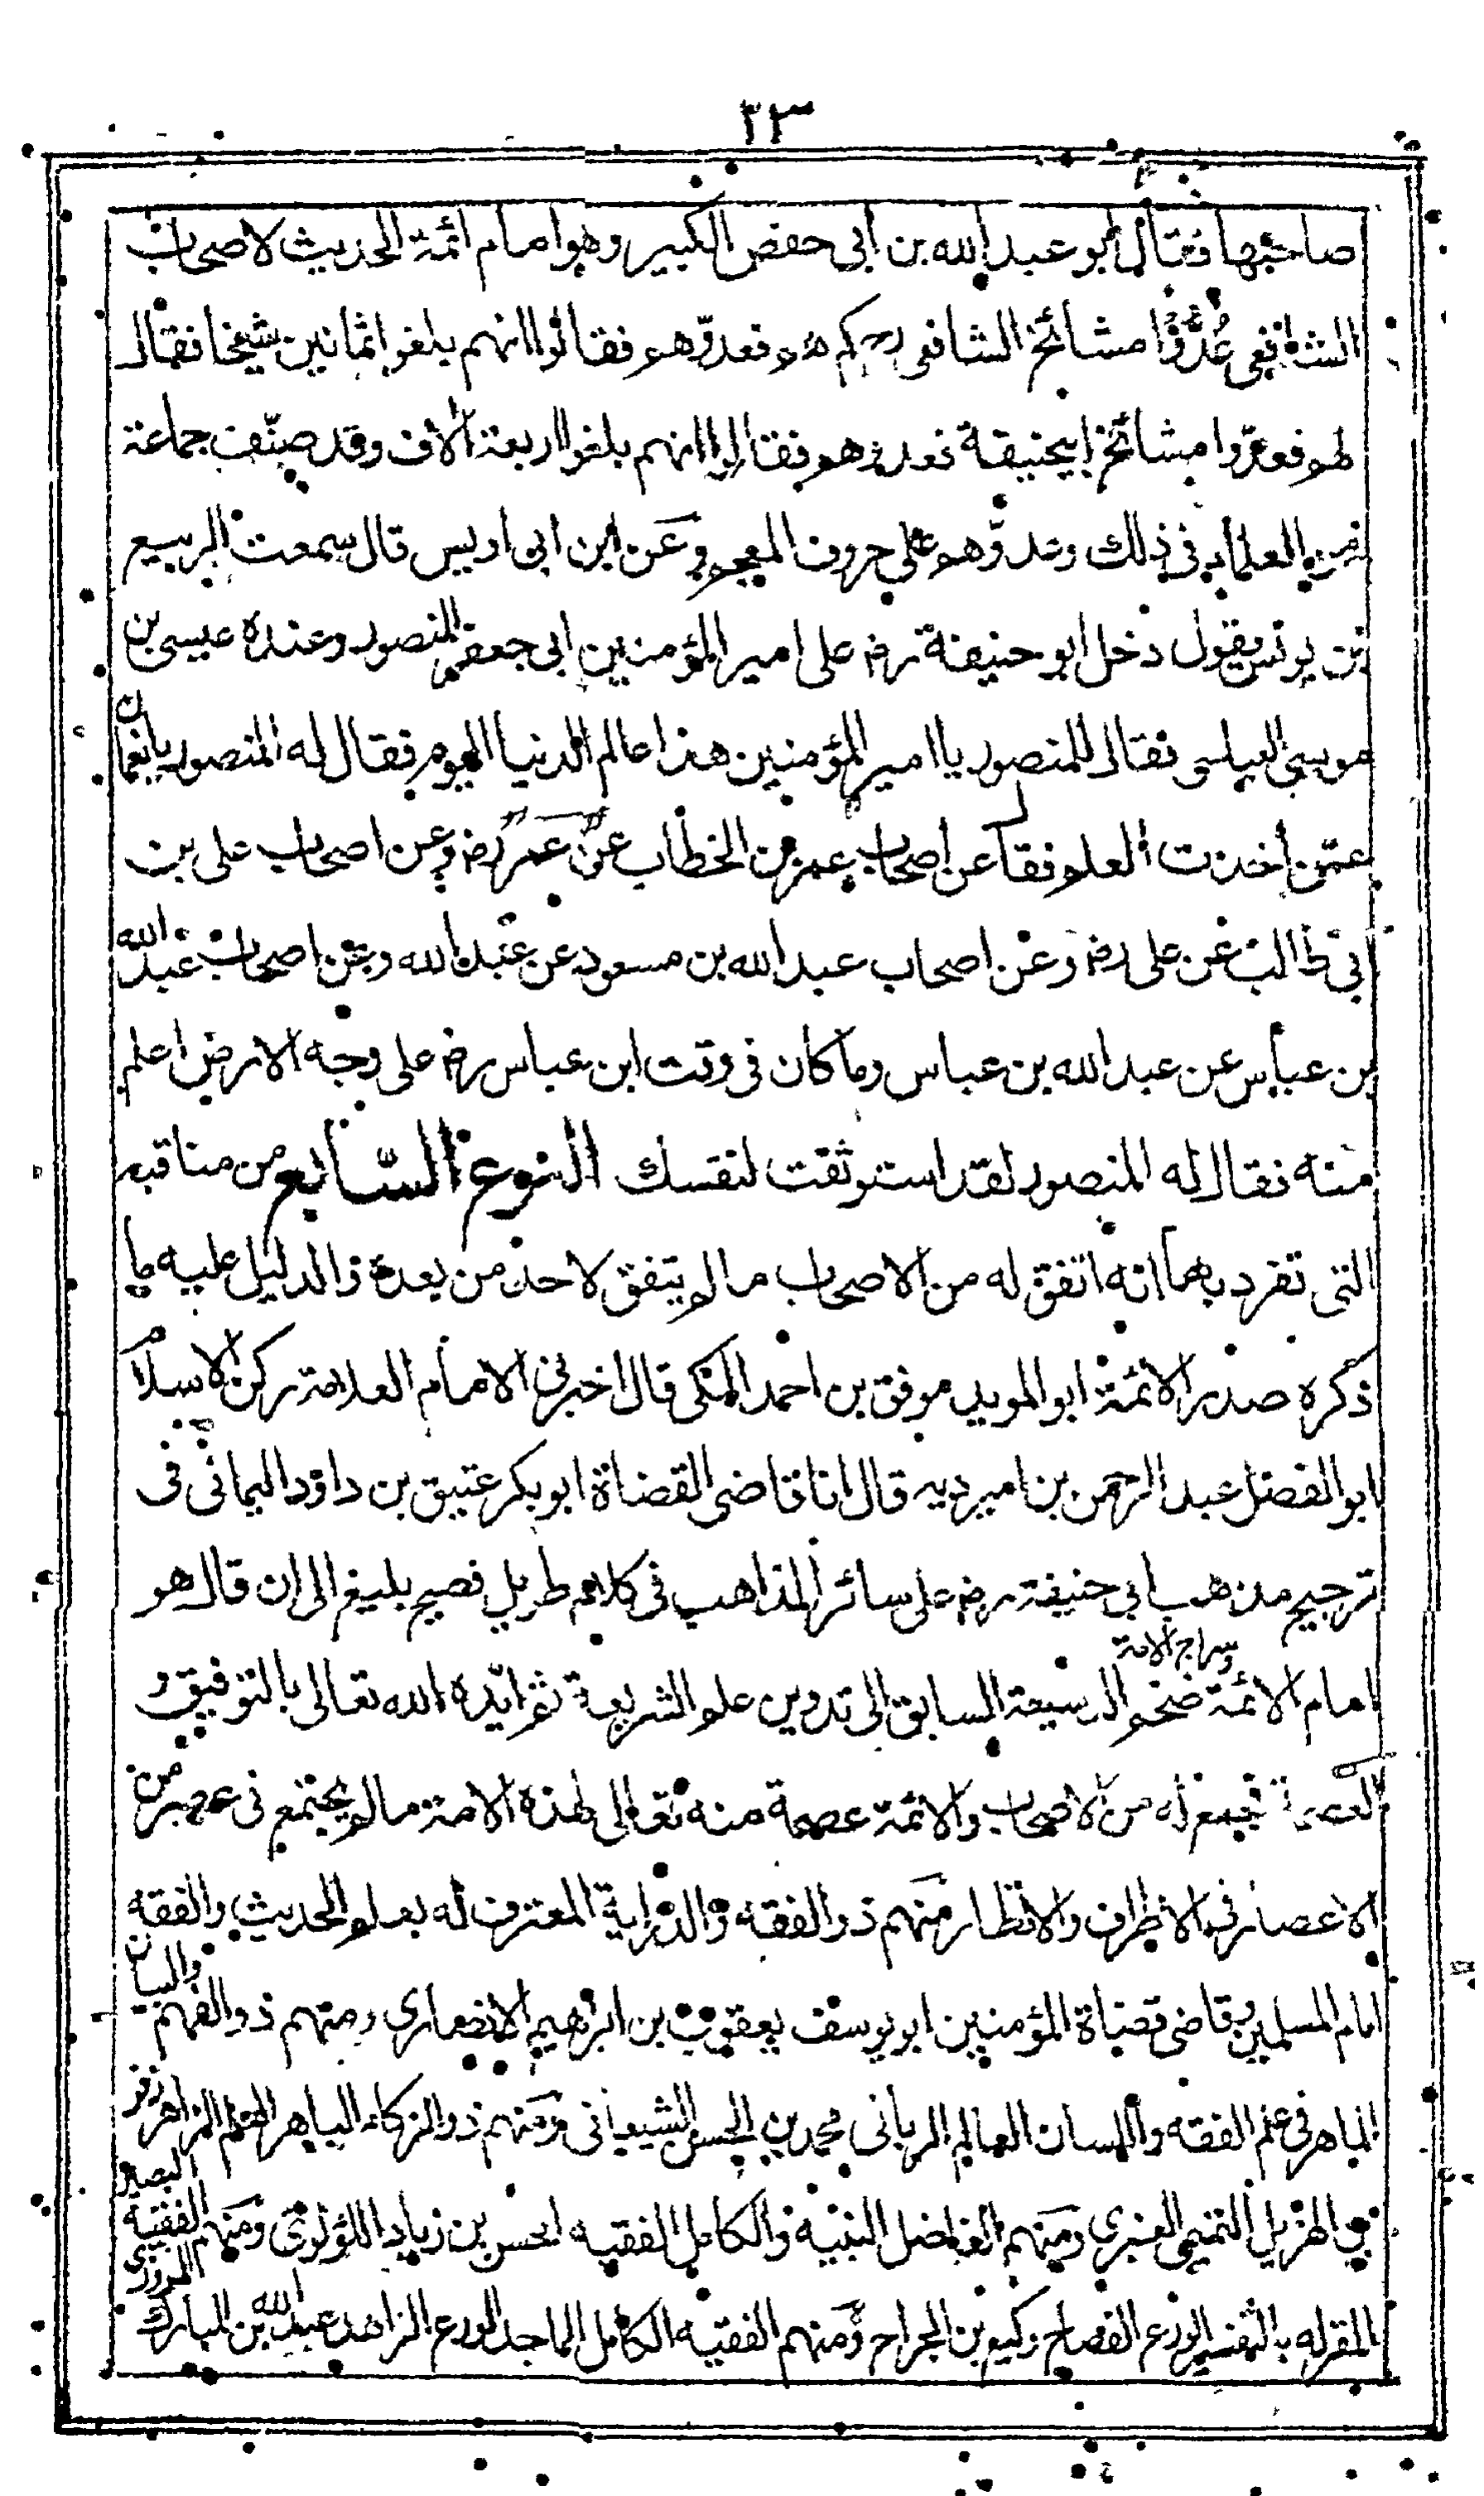 ٢٣
صاحبها فقال ابو عبد الله بن ابی حفص الکبیر وهو امام ائمة الحدیث لاصحاب
الشافعی عُدُّوا مشائخ الشافعی رح کم هم فعدّوهم فقالوا انهم بلغوا ثمانین شیخا فقال
لهم فعدّوا مشائخ ابیحنیفة فعدّوهم فقالوا انهم بلغوا اربعة آلاف وقد صنّف جماعة
من العلماء فی ذلك وعدّوهم علی حروف المعجم وعن ابن ابی اویس قال سمعت الربیع
بن یونس یقول دخل ابو حنیفة رض علی امیر المؤمنین ابی جعفر المنصور وعنده عیسی بن
موسی العبلسی فقال للمنصور یا امیر المؤمنین هذا عالم الدنیا الیوم فقال له المنصور یا نعمان
عمّن اخذت العلم فقال عن اصحاب عمر بن الخطاب عن عمر رض وعن اصحاب علی بن
ابی طالب عن علی رض وعن اصحاب عبد الله بن مسعود عن عبد الله وعن اصحاب عبد الله
بن عباس عن عبد الله بن عباس وما کان فی وقت ابن عباس رض علی وجه الارض اعلم
منه فقال له المنصور لقد استوثقت لنفسك النوع السّابع من مناقبه
التی تفرد بها انه اتفق له من الاصحاب ما لم یتفق لاحد من بعده والدلیل علیه ما
ذکره صدر الائمة ابو الموید موفق بن احمد المکی قال اخبرنی الامام العلامة رکن الاسلام
ابو الفضل عبد الرحمن بن امیردیه قال انا قاضی القضاة ابو بکر عتیق بن داؤد الیمانی فی
ترجیح مذهب ابی حنیفة رض علی سائر المذاهب فی کلام طویل فصیح بلیغ الی ان قال هو
امام الائمة وسراج الامة ضخم الدسیعة السابق الی تدوین علم الشریعة ثم ایّده الله تعالی بالتوفیق و
العصمة فجمع له من الاصحاب والائمة عصمة منه تعالی لهذه الامة ما لم یجتمع فی عصر من
الاعصار فی الاطراف والاقطار منهم ذو الفقه والدرایة المعترف له بعلم الحدیث والفقه
امام المسلمین وقاضی قضاة المؤمنین ابو یوسف یعقوب بن ابراهیم الانصاری ومنهم ذو الفهم والبیان
الماهر فی علم الفقه واللسان العالم الربانی محمد بن الحسن الشیبانی ومنهم ذو الزکاء الباهر العلم الزاهر زفر
بن الهزیل التمیمی العنبری ومنهم الفاضل النبیه والکامل الفقیه الحسن بن زیاد اللؤلؤی ومنهم الفقیه البصیر
المقر له بالتفسیر الورع الفصاح وکیع بن الجراح ومنهم الفقیه الکامل الماجد الورع الزاهد عبد الله بن المبارك المروزی